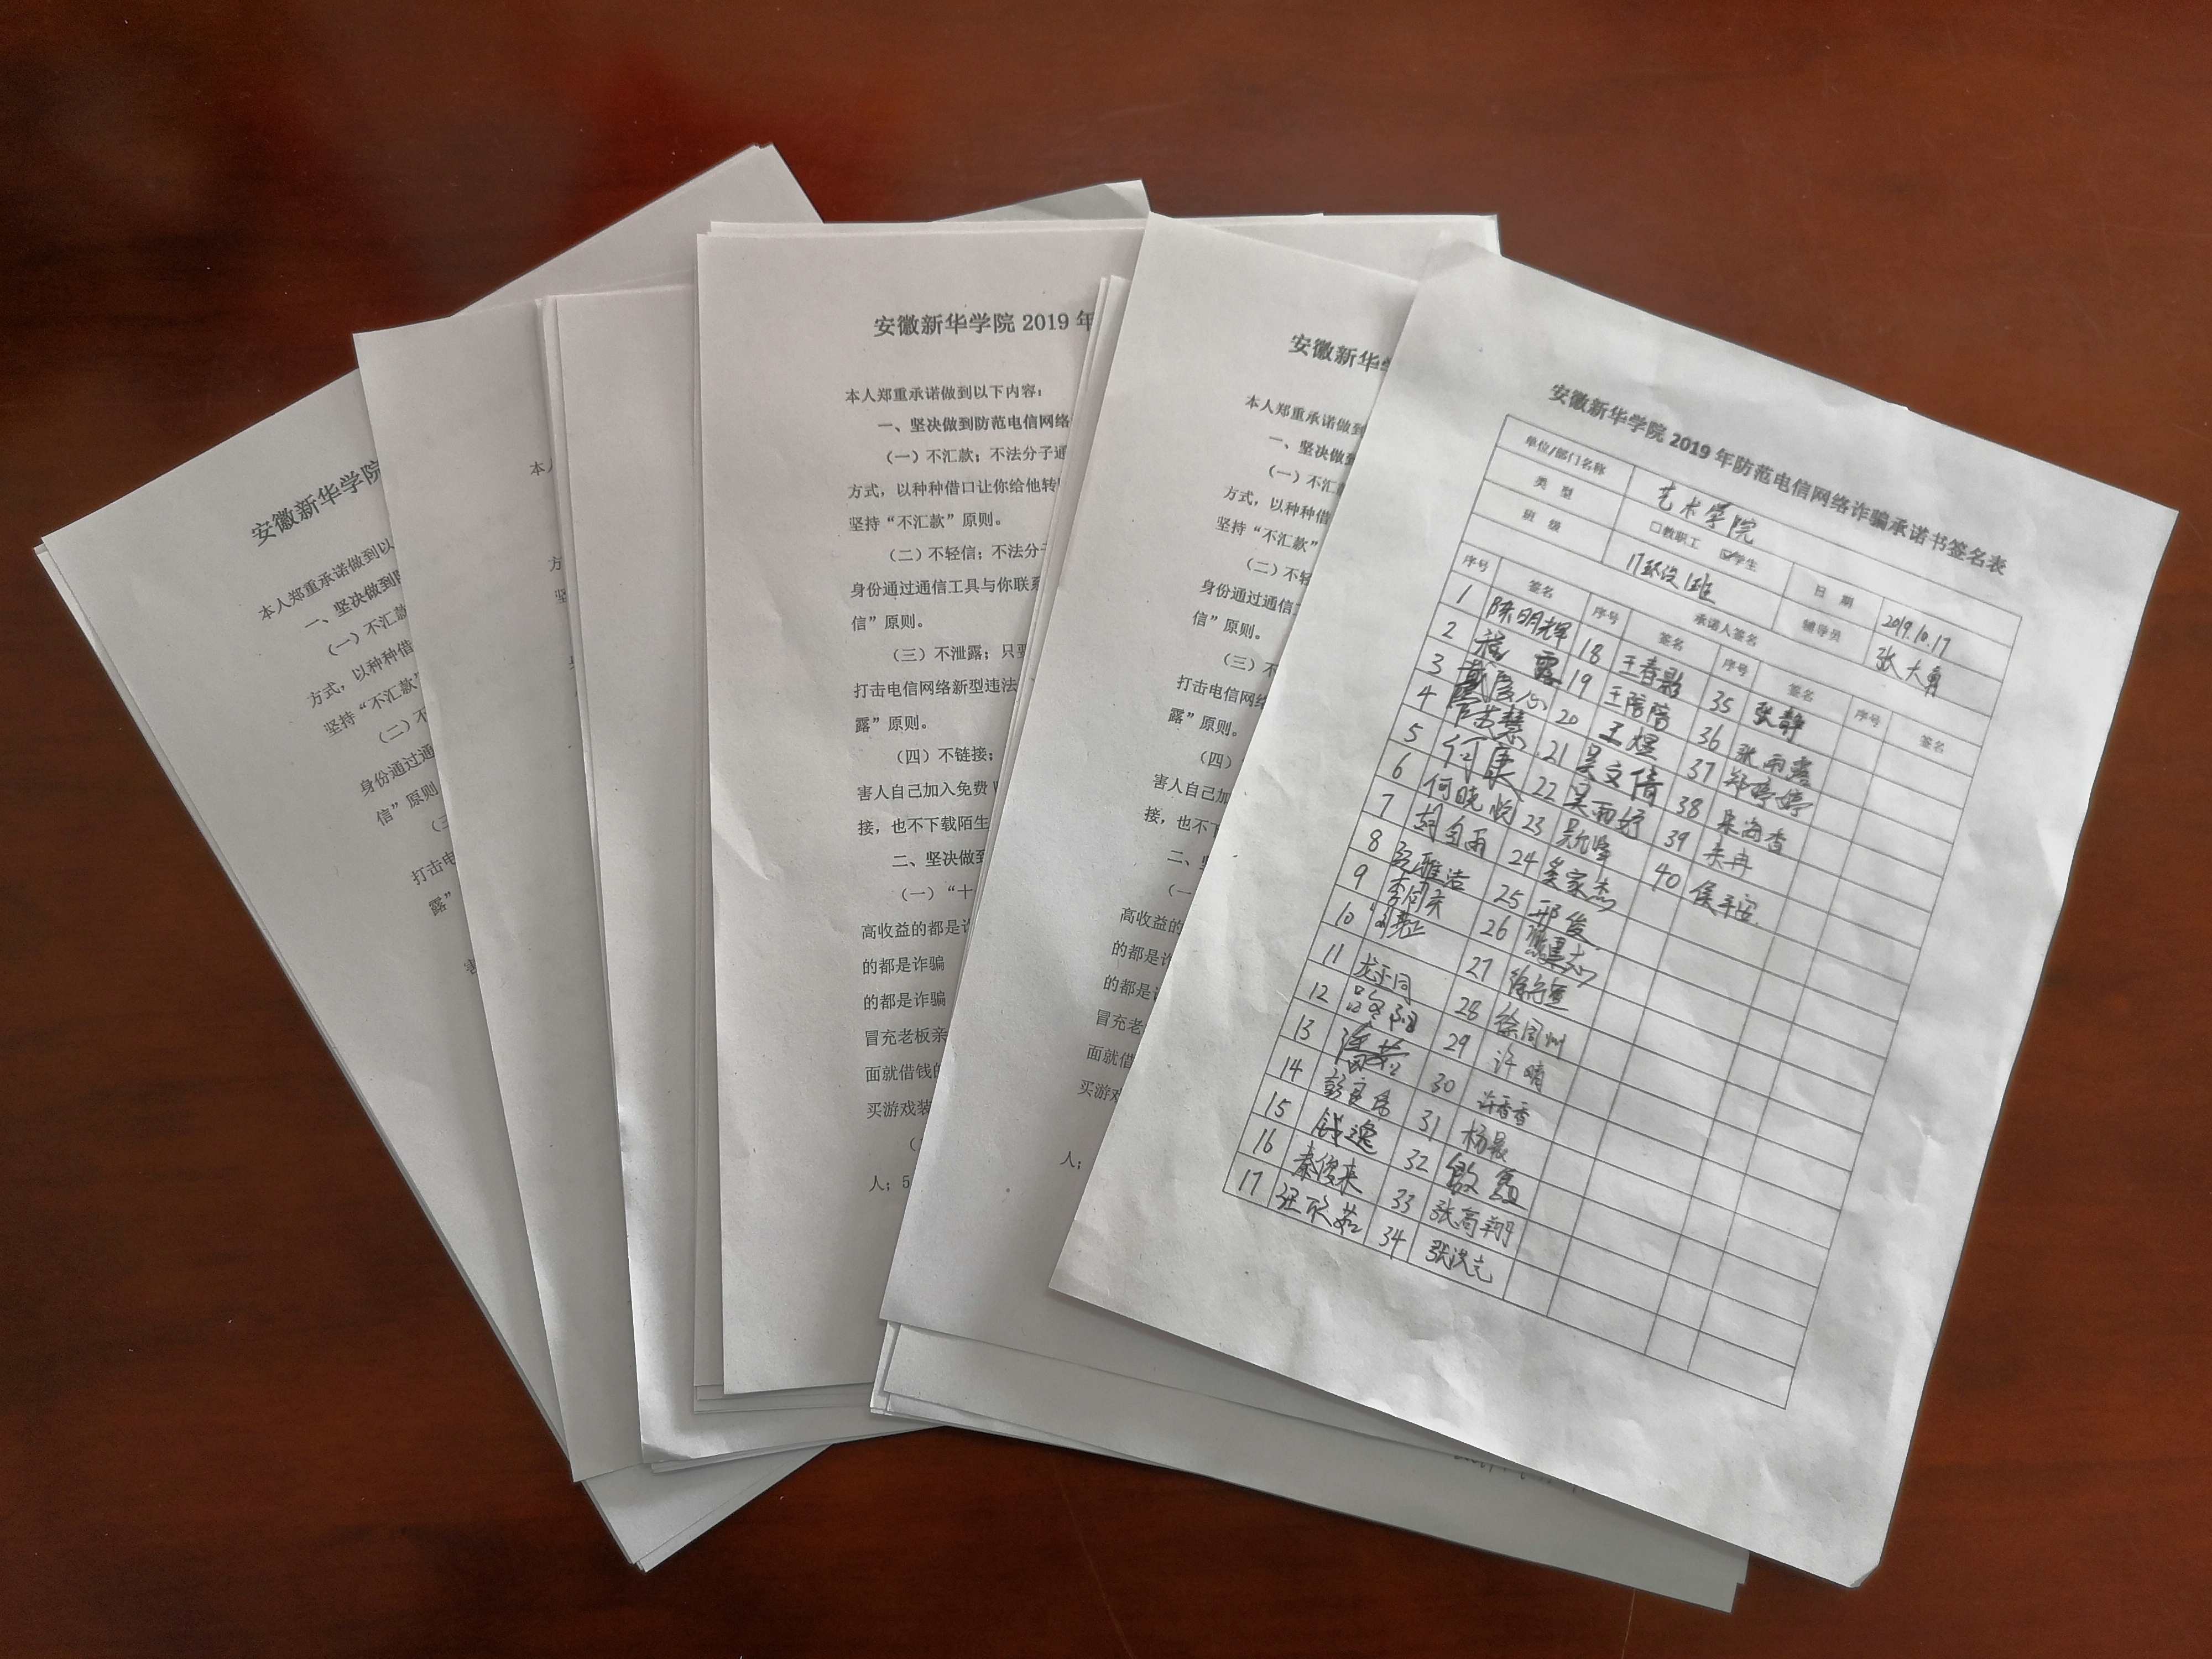 安徽新华学院
本人郑重承诺做到以
一、坚决做到防
（一）不汇款
方式，以种种借
坚持“不汇款”
（二）不
身份通过通
信”原则
（三
打击电
露”
害
本人
方
坚
安徽新华学院 2019 年
本人郑重承诺做到以下内容：
一、坚决做到防范电信网络
（一）不汇款；不法分子通
方式，以种种借口让你给他转
坚持“不汇款”原则。
（二）不轻信；不法分子
身份通过通信工具与你联系
信”原则。
（三）不泄露；只要
打击电信网络新型违法
露”原则。
（四）不链接；
害人自己加入免费
接，也不下载陌生
二、坚决做到
（一）“十
高收益的都是诈
的都是诈骗
的都是诈骗
冒充老板亲
面就借钱的
买游戏装
人；5
安徽新华学
本人郑重承诺做到
一、坚决做到
（一）不汇
方式，以种种借
坚持“不汇款”
（二）不轻
身份通过通信
信”原则。
（三）不
打击电信网络
露”原则。
（四）
害人自己加
接，也不下
二、坚
（一
高收益的
的都是诈
的都是
冒充老
面就借
买游戏
人；
安徽新华学院 2019 年防范电信网络诈骗承诺书签名表
单位/部门名称 艺术学院
类 型 □教职工 ☑学生 日 期 2019.10.17
班 级 17环设1班 辅导员 张大勇
承诺人签名
序号 签名 序号 签名 序号 签名 序号 签名
1 陈明辉 18 王春 35 张静
2 程露 19 王陪陪 36 张雨露
3 20 王煜 37 郑婷婷
4 21 吴文倩 38 海杏
5 付康 22 吴雨婷 39 朱冉
6 何晓悦 23 吴 40 侯平安
7 胡自雨 24 奚家杰
8 雅洁 25 邢俊
9 李同庆 26
10 27 徐
11 龙于同 28 徐周州
12 29 许晴
13 30 许香香
14 31 杨晨
15 钱逸 32
16 秦俊来 33 张高翔
17 汪欣茹 34 张洪志